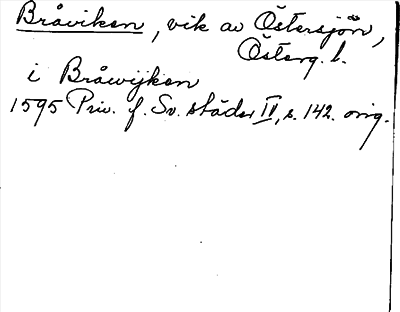 Bråviken, vik av Östersjön,
Österg. l.
i Bråwijken
1595 Priv. f. Sv. städer IV, s. 142. orig.